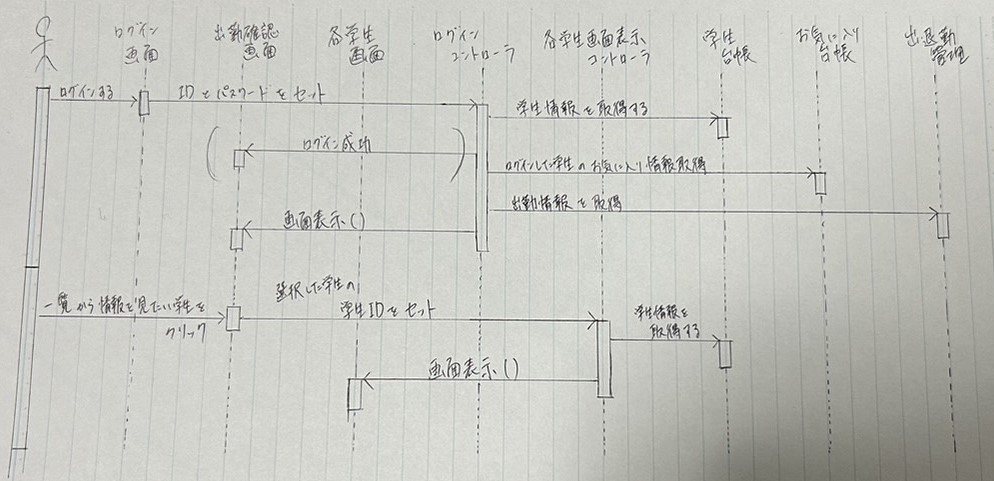 ログイン
画面
出勤確認
画面
各学生
画面
ログイン
コントローラ
各学生画面表示
コントローラ
学生
台帳
お気に入り
台帳
出退勤
管理
ログインする
IDとパスワードをセット
学生情報を取得する
(ログイン成功)
ログインした学生のお気に入り情報取得
出勤情報を取得
画面表示()
一覧から情報を見たい学生を
クリック
選択した学生の
学生IDをセット
学生情報を
取得する
画面表示()